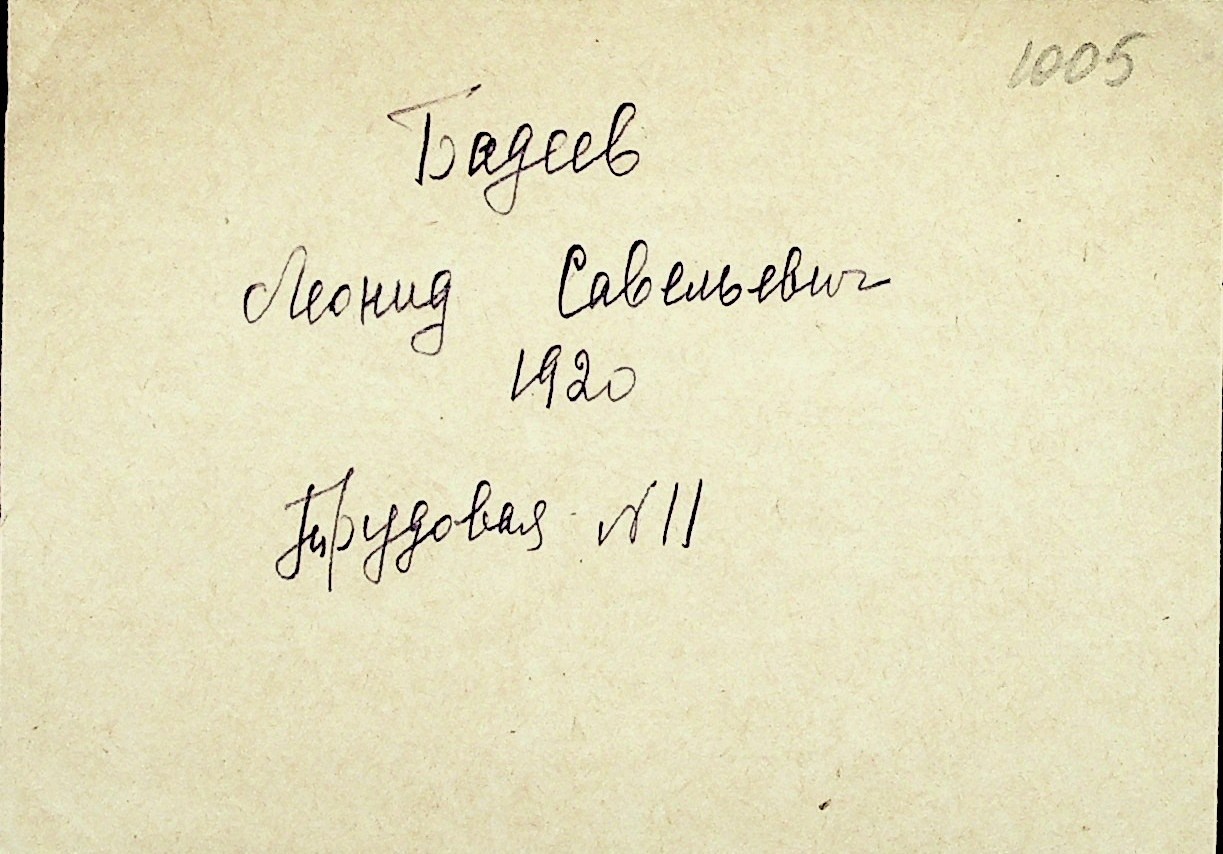 1005
Бадеев
Леонид Савельевич
1920
Трудовая N 11